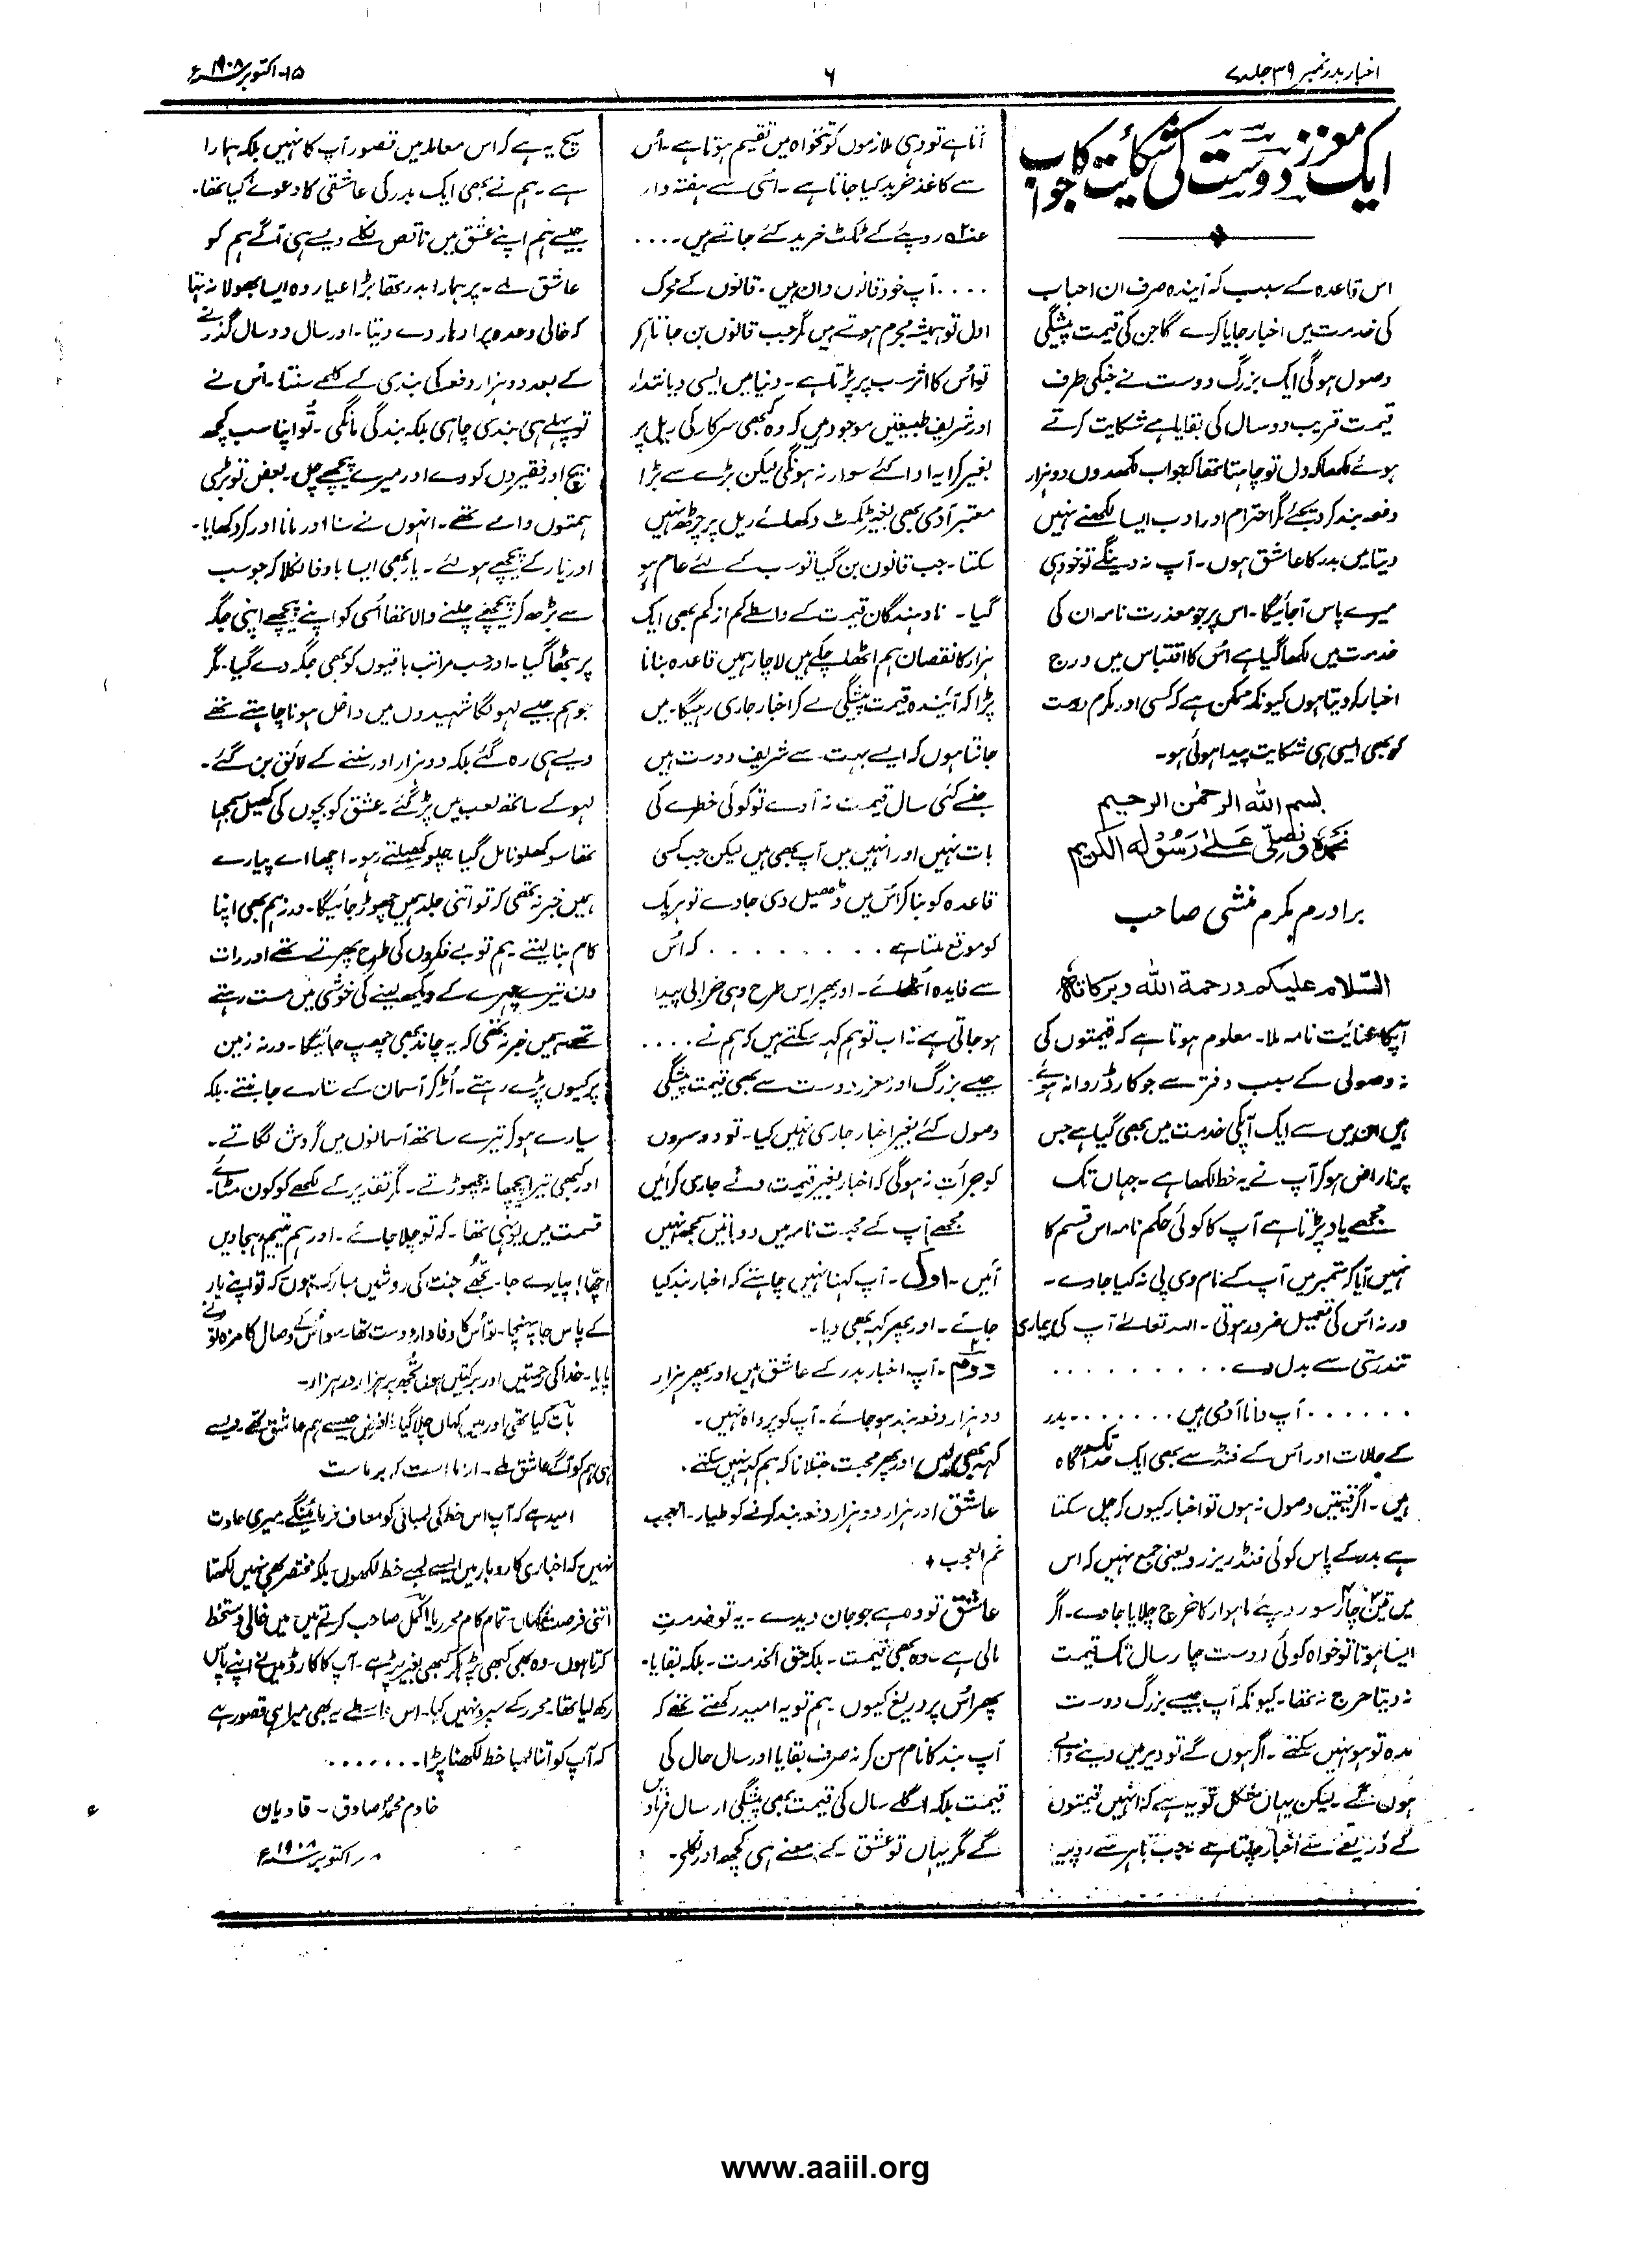 اخبار بدر نمبر ۳۹ جلد ۷
۶
۱۵۔اکتوبر ۱۹۰۸ء
ایک معزز دوست کی شکائیت کا جواب
اس قاعدہ کے سبب کہ آیندہ صرف ان احباب
کی خدمت میں اخبار جایا کرے گا جن کی قیمت پیشگی
وصول ہوگی ایک بزرگ دوست نے جنکی طرف
قیمت قریب دو سال کی بقایا ہے شکایت کرتے
ہوئے لکھا کہ دل تو چاہتا تھا کہ جواب لکھدوں دو ہزار
دفعہ بند کر دیجئے مگر احترام اور ادب ایسا لکھنے نہیں
دیتا میں بدر کا عاشق ہوں۔ آپ نہ دینگے تو خود ہی
میرے پاس آجائیگا۔ اس پر جو معذرت نامہ ان کی
خدمت میں لکھا گیا ہے اُس کا اقتباس میں درج
اخبار کر دیتا ہوں کیونکہ ممکن ہے کہ کسی اور مکرم دوست
کو بھی ایسی ہی شکایت پیدا ہوئی ہو۔
بسم اللہ الرحمٰن الرحیم
نحمدہ و نصلی علےٰ رسولہ الکریم
برادرم مکرم منشی صاحب
السّلام علیکم و رحمۃ اللہ و برکاتہ
آپکا عنائیت نامہ ملا۔ معلوم ہوتا ہے کہ قیمتوں کی
نہ وصولی کے سبب دفتر سے جو کارڈ روانہ ہوئے
ہیں ان میں سے ایک آپکی خدمت میں بھی گیا ہے جس
پر ناراض ہو کر آپ نے یہ خط لکھا ہے۔ جہاں تک
مجھے یاد پڑتا ہے آپ کا کوئی حکم نامہ اس قسم کا
نہیں آیا کہ ستمبر میں آپ کے نام وی پی نہ کیا جاوے۔
ورنہ اُس کی تعمیل ضرور ہوتی۔ اللہ تعالےٰ آپ کی بیماری
تندرستی سے بدل دے . . . . . . . . .
. . . . . . آپ دانا آدمی ہیں . . . . . . ۔ بدر
کے حالات اور اُس کے فنڈ سے بھی ایک حد تک آگاہ
ہیں۔ اگر قیمتیں وصول نہ ہوں تو اخبار کیوں کر چل سکتا
ہے بدر کے پاس کوئی فنڈ ریزرو یعنی جمع نہیں کہ اس
میں تین چار سو روپے ماہوار کا خرچ چلایا جاوے۔ اگر
ایسا ہوتا تو خواہ کوئی دوست چار سال تک قیمت
نہ دیتا حرج نہ تھا۔ کیونکہ آپ جیسے بزرگ دوست
مدہ تو ہو نہیں سکتے۔ اگر ہوں گے تو دیر میں دینے والے
ہوں گے۔ لیکن یہاں مشکل تو یہ ہے کہ انہیں قیمتوں
کے ذریعے سے اخبار چلتا ہے جب باہر سے روپیہ
آتا ہے تو وہی ملازموں کو تنخواہ میں تقسیم ہوتا ہے۔ اُس
سے کاغذ خرید کیا جاتا ہے۔ اسی سے ہفتہ وار
روپے کے ٹکٹ خرید کئے جاتے ہیں۔ . . . .
. . . . آپ خود قانون دان ہیں۔ قانون کے محرک
اول تو ہمیشہ مجرم ہوتے ہیں مگر جب قانون بن جاتا ہے
تو اُس کا اثر سب پر پڑتا ہے۔ دنیا میں ایسی دیانتدار
اور شریف طبیعتیں موجود ہیں کہ وہ کبھی سرکار کی ریل پر
بغیر کرایہ ادا کئے سوار نہ ہونگی لیکن بڑے سے بڑا
معتبر آدمی بھی بغیر ٹکٹ دکھلائے ریل پر چڑھ نہیں
سکتا۔ جب قانون بن گیا تو سب کے لئے عام ہو
گیا۔ نادہندگان قیمت کے واسطے کم از کم بھی ایک
ہزار کا نقصان ہم اٹھا چکے ہیں لاچار ہمیں قاعدہ بنانا
پڑا کہ آئیندہ قیمت پیشگی لے کر اخبار جاری رہیگا۔ میں
جانتا ہوں کہ ایسے بہت سے شریف دوست ہیں
جنسے کئی سال قیمت نہ آوے تو کوئی خطرے کی
بات نہیں اور انہیں میں آپ بھی ہیں لیکن جب کسی
قاعدہ کو بنا کر اُس میں ڈھیل دی جاوے تو ہر یک
کو موقع ملتا ہے . . . . . . . . . کہ اُس
سے فایدہ اُٹھائے۔ اور پھر اس طرح وہی خرابی پیدا
ہو جاتی ہے۔ اب تو ہم کہہ سکتے ہیں کہ ہم نے . . . .
جیسے بزرگ اور معزز دوست سے بھی قیمت پیشگی
وصول کئے بغیر اخبار جاری نہیں کیا۔ تو دوسروں
کو جرأت نہ ہوگی کہ اخبار بغیر قیمت دئے جاری کرائیں
مجھے آپ کے محبت نامہ میں دو باتیں سمجھ نہیں
آئیں۔ اول۔ آپ کہنا نہیں چاہتے کہ اخبار بند کیا
جائے۔ اور پھر کہہ بھی دیا۔
دوم۔ آپ اخبار بدر کے عاشق ہیں اور پھر ہزار
دو ہزار دفعہ بند ہو جائے۔ آپ کو پرواہ نہیں۔
کہہ بھی لیں اور پھر محبت جتلانا کہ ہم کہہ نہیں سکتے۔
عاشق اور ہزار دو ہزار دفعہ بند کرنے کو طیار۔ العجب
ثم العجب ✦
عاشق تو وہ ہے جو جان دیدے۔ یہ تو خدمت
مالی ہے۔ وہ بھی قیمت۔ بلکہ حق الخدمت۔ بلکہ بقایا۔
پھر اُس پر دریغ کیوں۔ ہم تو یہ امید رکھتے تھے کہ
آپ بند کا نام سن کر نہ صرف بقایا اور سال حال کی
قیمت بلکہ اگلے سال کی قیمت بھی پیشگی ارسال فرماویں
گے مگر یہاں تو عشق کے معنے ہی کچھ اور نکلے۔
سچ یہ ہے کہ اس معاملہ میں قصور آپ کا نہیں بلکہ ہمارا
ہے۔ ہم نے بھی ایک بدر کی عاشقی کا دعوےٰ کیا تھا۔
جیسے ہم اپنے عشق میں ناقص نکلے ویسے ہی آگے ہم کو
عاشق ملے۔ پر ہمارا بدر تھا بڑا عیار وہ ایسا بھولا نہ تھا
کہ خالی وعدہ پر ادہار دے دیتا۔ اور سال دو سال گذرنے
کے بعد دو ہزار دفعہ کی بندی کے کلمے سنتا۔ اُس نے
تو پہلے ہی بندی چاہی بلکہ بندگی مانگی۔ تُو اپنا سب کچھ
بیچ اور فقیروں کو دے اور میرے پیچھے چل۔ بعض تو بڑی
ہمتوں والے تھے۔ انہوں نے سنا اور مانا اور کر دکھایا۔
اور یار کے پیچھے ہو لئے۔ یار بھی ایسا باوفا نکلا کہ جو سب
سے بڑھ کر پیچھے چلنے والا تھا اُسی کو اپنے پیچھے اپنی جگہ
پر بٹھا گیا۔ اور حسب مراتب باقیوں کو بھی جگہ دے گیا۔ مگر
جو ہم جیسے لہو لگا شہیدوں میں داخل ہونا چاہتے تھے
ویسے ہی رہ گئے بلکہ دو ہزار اور سننے کے لائق بن گئے۔
لہو کے ساتھ لعب میں پڑ گئے۔ عشق کو بچوں کی کھیل سمجھا
تھا سو کھلونا مل گیا چلو کھیلتے رہو۔ اچھا اے پیارے
ہمیں خبر نہ تھی کہ تو اتنی جلد ہمیں چھوڑ جائیگا۔ ورنہ ہم بھی اپنا
کام بنا لیتے۔ ہم تو بے فکروں کی طرح پھرتے تھے اور رات
دن تیرے چہرے کے دیکھ لینے کی خوشی میں مست رہتے
تھے ہمیں خبر نہ تھی کہ یہ چاند بھی چھپ جائیگا۔ ورنہ زمین
پر کیوں پڑے رہتے۔ اُڑ کر آسمان کے تارے جا بنتے۔ بلکہ
سیارے ہو کر تیرے ساتھ آسمانوں میں گردش لگاتے۔
اور کبھی تیرا پیچھا نہ چھوڑتے۔ مگر تقدیر کے لکھے کو کون مٹائے۔
قسمت میں یونہی تھا۔ کہ تو چلا جائے۔ اور ہم یتیم رہجاویں
اچھا! پیارے جا۔ تجھے جنت کی روشیں مبارک ہوں کہ تو اپنے یار
کے پاس جا پہنچا۔ تو اُس کا وفادار دوست تھا۔ سو اُس کے وصال کا مزہ تو نے
پایا۔ خدا کی رحمتیں اور برکتیں ہوں تجھ پر ہزار در ہزار۔
بات کیا تھی اور میں کہاں چلا گیا! الغرض جیسے ہم عاشق تھے۔ ویسے
ہی ہم کو آگے عاشق ملے۔ از ماست کہ بر ماست
امید ہے کہ آپ اس خط کی لمبائی کو معاف فرمائینگے میری عادت
نہیں کہ اخباری کاروبار میں ایسے لمبے خط لکھوں۔ بلکہ مختصر بھی نہیں لکھتا
اتنی فرصت کہاں۔ تمام کام محرر یا اکمل صاحب کرتے ہیں میں خالی دستخط
کرتا ہوں۔ وہ بھی کبھی پڑہکر کبھی بغیر پڑہے۔ آپ کا کارڈ میں نے اپنے پاس
رکھ لیا تھا۔ محرر کے سپرد نہیں کیا۔ اس واسطے یہ بھی میرا ہی قصور ہے
کہ آپ کو اتنا لمبا خط لکھنا پڑا۔ . . . . . . .
خادم محمد صادق۔ قادیان
۸؍ اکتوبر ۱۹۰۸ء
www.aaiil.org